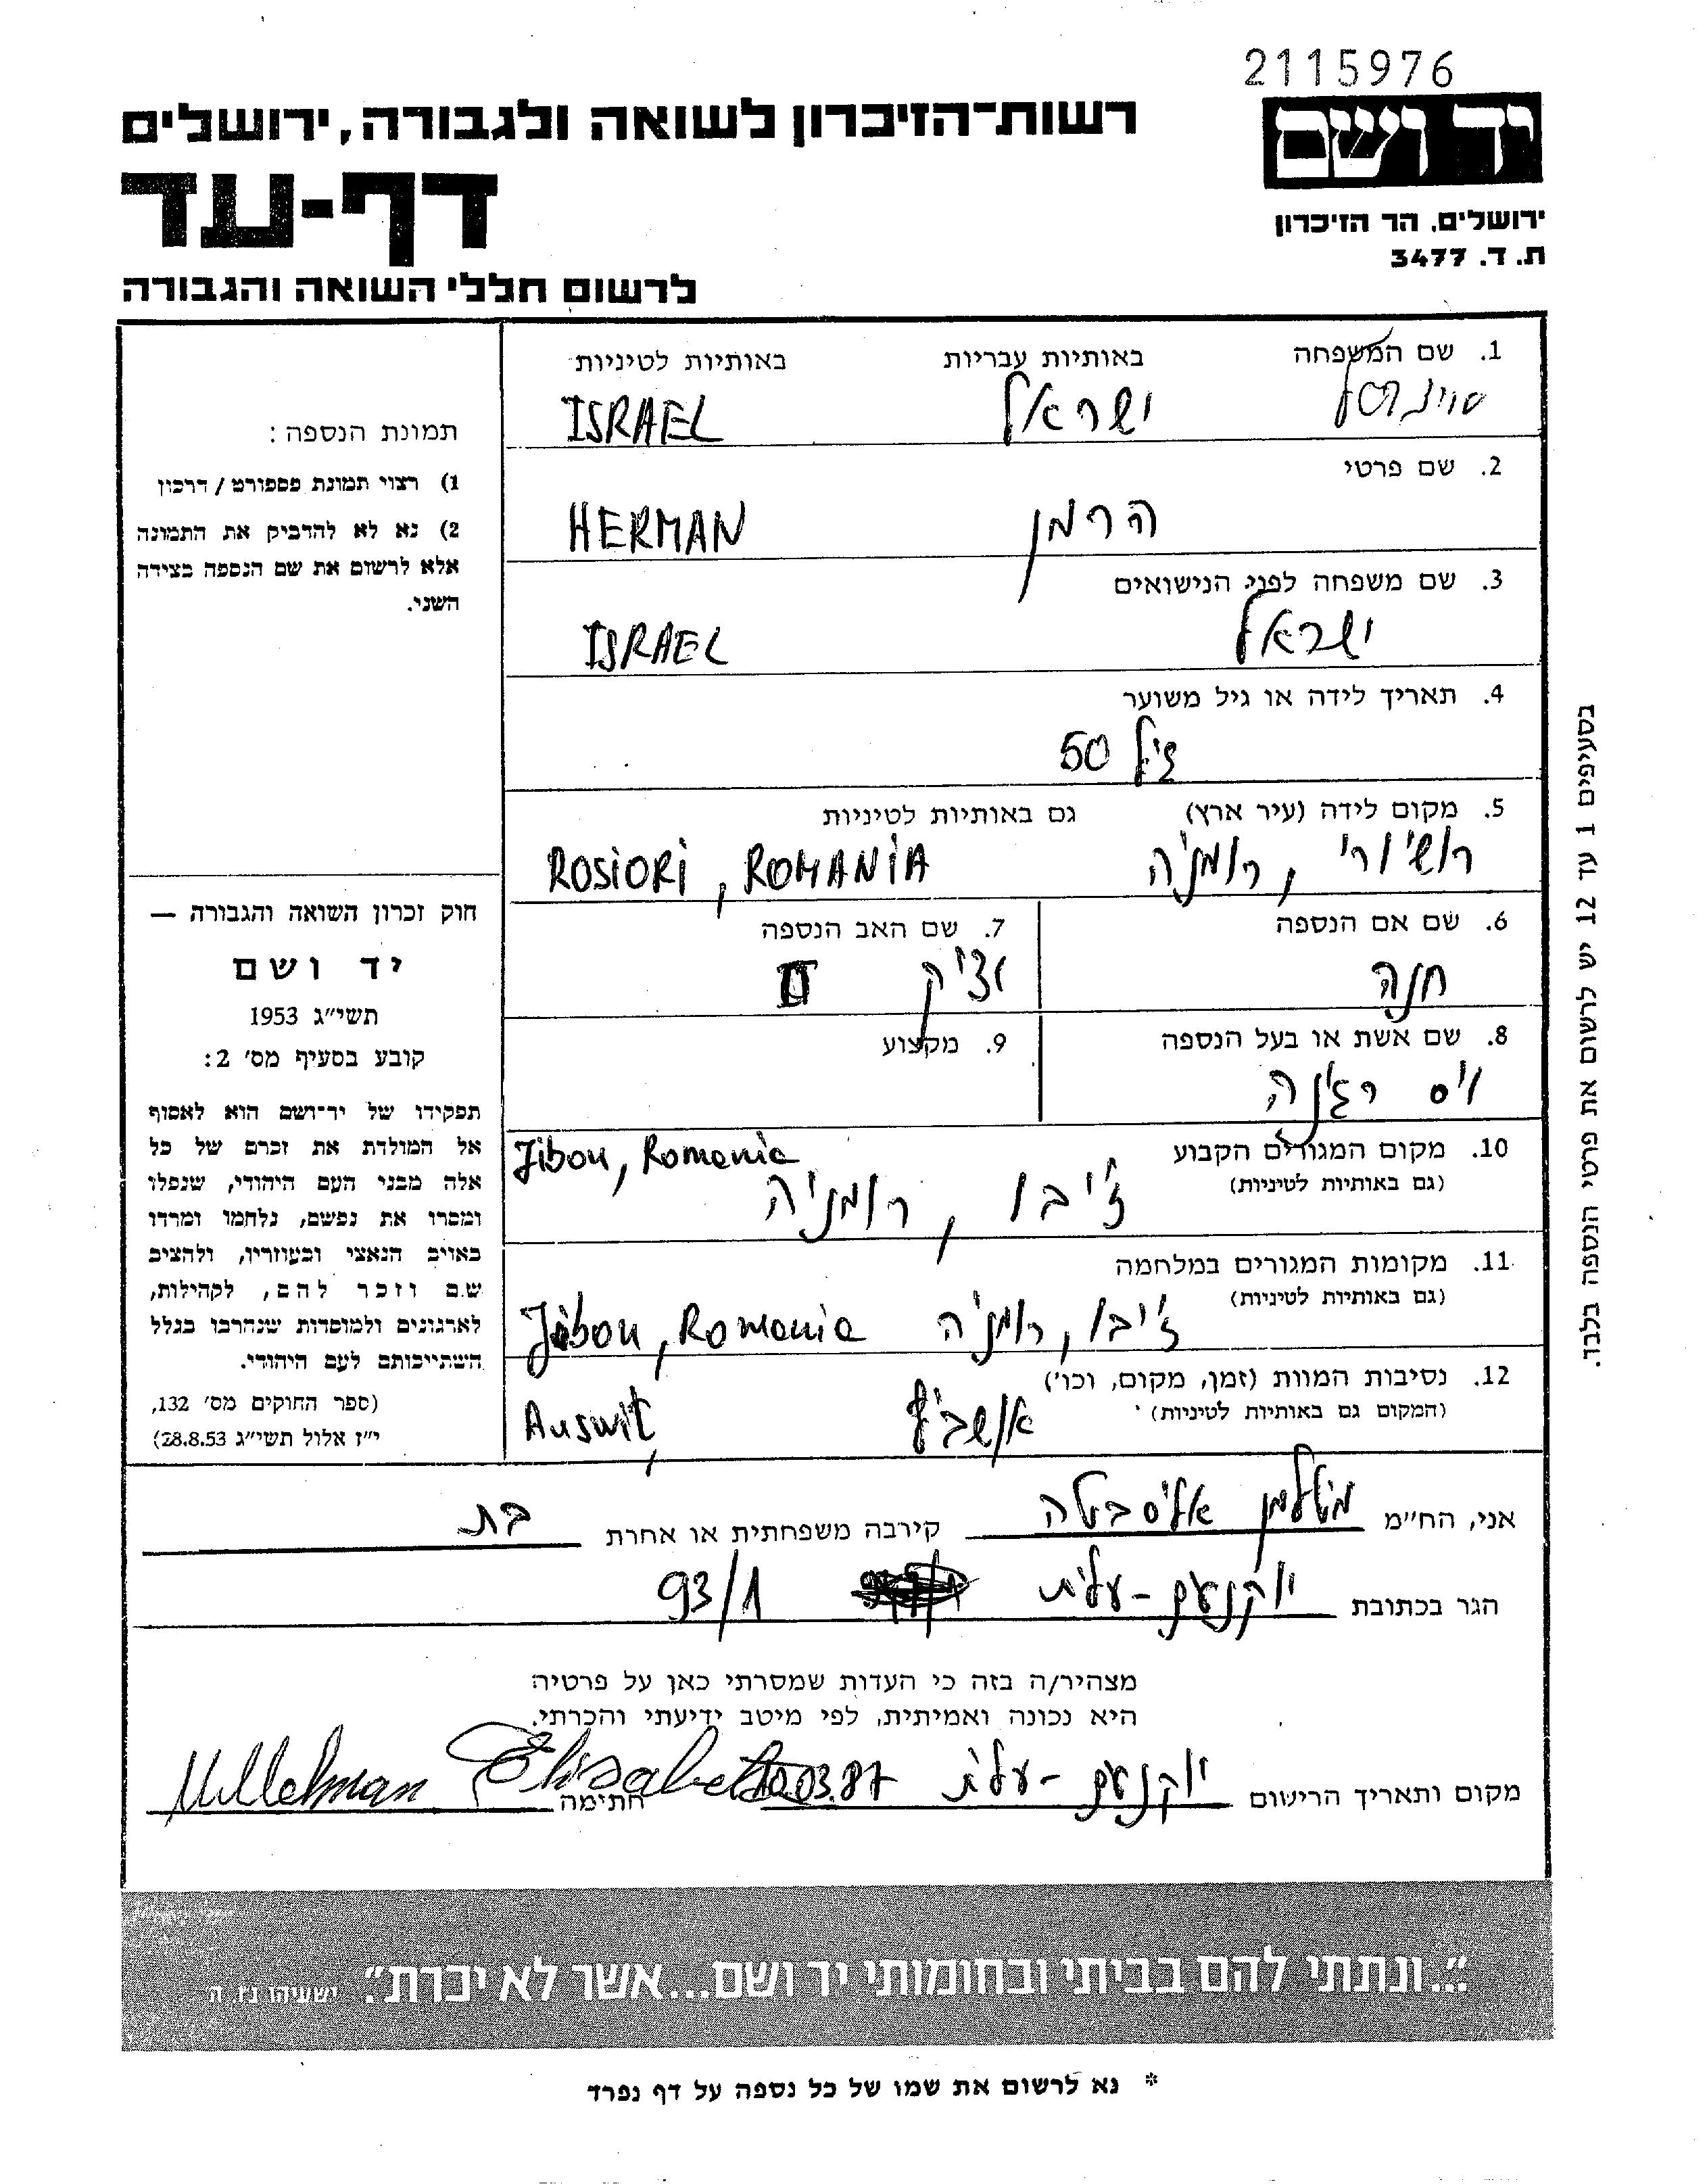 2115976
יד ושם
ירושלים, הר הזיכרון
ת. ד. 3477
רשות־הזיכרון לשואה ולגבורה, ירושלים
דף-עד
לרשום חללי השואה והגבורה
1. שם המשפחה באותיות עבריות באותיות לטיניות
ישראל ISRAEL
2. שם פרטי
הרמן HERMAN
3. שם משפחה לפני הנישואים
ישראל ISRAEL
4. תאריך לידה או גיל משוער
גיל 50
5. מקום לידה (עיר ארץ) גם באותיות לטיניות
רושיורי, רומניה ROSIORI, ROMANIA
6. שם אם הנספה
חנה
7. שם האב הנספה
איציק
8. שם אשת או בעל הנספה
ויס רגינה
9. מקצוע
10. מקום המגורים הקבוע
(גם באותיות לטיניות)
Jibou, Romania
ז'יבו, רומניה
11. מקומות המגורים במלחמה
(גם באותיות לטיניות)
ז'יבו, רומניה Jibou, Romania
12. נסיבות המוות (זמן, מקום, וכו')
(המקום גם באותיות לטיניות)
אושביץ Auswiţ
תמונת הנספה:
1) רצוי תמונת פספורט / דרכון
2) נא לא להדביק את התמונה
אלא לרשום את שם הנספה בצידה
השני.
חוק זכרון השואה והגבורה —
יד ושם
תשי״ג 1953
קובע בסעיף מס' 2:
תפקידו של יד־ושם הוא לאסוף
אל המולדת את זכרם של כל
אלה מבני העם היהודי, שנפלו
ומסרו את נפשם, נלחמו ומרדו
באויב הנאצי ובעוזריו, ולהציב
שם וזכר להם, לקהילות,
לארגונים ולמוסדות שנחרבו בגלל
השתייכותם לעם היהודי.
(ספר החוקים מס' 132,
י״ז אלול תשי״ג 28.8.53)
בסעיפים 1 עד 12 יש לרשום את פרטי הנספה בלבד.
אני, הח״מ מילמן אליסבטה קירבה משפחתית או אחרת בת
הגר בכתובת יוקנעם-עלית 93/1
מצהיר/ה בזה כי העדות שמסרתי כאן על פרטיה
היא נכונה ואמיתית, לפי מיטב ידיעתי והכרתי.
מקום ותאריך הרישום יוקנעם-עלית 10.03.87 חתימה Millelman Elisabeta
״...ונתתי להם בביתי ובחומותי יד ושם...אשר לא יכרת״. ישעיהו נו, ה
* נא לרשום את שמו של כל נספה על דף נפרד